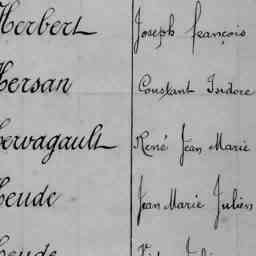 Herbert Joseph françois
Hersan Constant Isidore
Hervagault René Jean Marie
Heude Jean Marie Julien
Heude